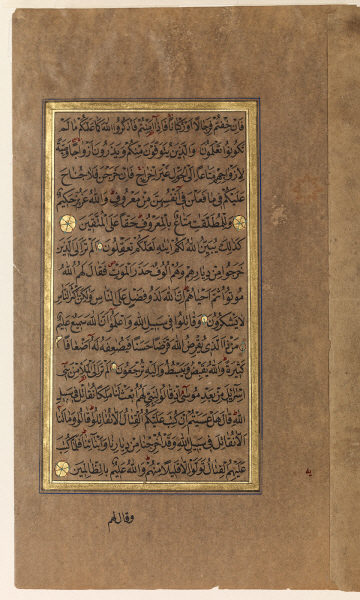 فَإِنْ خِفْتُمْ فَرِجَالًا أَوْ رُكْبَانًا فَإِذَا أَمِنْتُمْ فَاذْكُرُوا اللهَ كَمَا عَلَّمَكُمْ مَا لَمْ
تَكُونُوا تَعْلَمُونَ وَالَّذِينَ يُتَوَفَّوْنَ مِنْكُمْ وَيَذَرُونَ أَزْوَاجًا وَصِيَّةً
لِأَزْوَاجِهِمْ مَتَاعًا إِلَى الْحَوْلِ غَيْرَ إِخْرَاجٍ فَإِنْ خَرَجْنَ فَلَا جُنَاحَ
عَلَيْكُمْ فِي مَا فَعَلْنَ فِي أَنْفُسِهِنَّ مِنْ مَعْرُوفٍ وَاللهُ عَزِيزٌ حَكِيمٌ
وَلِلْمُطَلَّقَاتِ مَتَاعٌ بِالْمَعْرُوفِ حَقًّا عَلَى الْمُتَّقِينَ
كَذَلِكَ يُبَيِّنُ اللهُ لَكُمْ آيَاتِهِ لَعَلَّكُمْ تَعْقِلُونَ أَلَمْ تَرَ إِلَى الَّذِينَ
خَرَجُوا مِنْ دِيَارِهِمْ وَهُمْ أُلُوفٌ حَذَرَ الْمَوْتِ فَقَالَ لَهُمُ اللهُ
مُوتُوا ثُمَّ أَحْيَاهُمْ إِنَّ اللهَ لَذُو فَضْلٍ عَلَى النَّاسِ وَلَكِنَّ أَكْثَرَ النَّاسِ
لَا يَشْكُرُونَ وَقَاتِلُوا فِي سَبِيلِ اللهِ وَاعْلَمُوا أَنَّ اللهَ سَمِيعٌ عَلِيمٌ
مَنْ ذَا الَّذِي يُقْرِضُ اللهَ قَرْضًا حَسَنًا فَيُضَاعِفَهُ لَهُ أَضْعَافًا
كَثِيرَةً وَاللهُ يَقْبِضُ وَيَبْسُطُ وَإِلَيْهِ تُرْجَعُونَ أَلَمْ تَرَ إِلَى الْمَلَإِ مِنْ بَنِي
إِسْرَائِيلَ مِنْ بَعْدِ مُوسَى إِذْ قَالُوا لِنَبِيٍّ لَهُمُ ابْعَثْ لَنَا مَلِكًا نُقَاتِلْ فِي سَبِيلِ
اللهِ قَالَ هَلْ عَسَيْتُمْ إِنْ كُتِبَ عَلَيْكُمُ الْقِتَالُ أَلَّا تُقَاتِلُوا قَالُوا وَمَا لَنَا
أَلَّا نُقَاتِلَ فِي سَبِيلِ اللهِ وَقَدْ أُخْرِجْنَا مِنْ دِيَارِنَا وَأَبْنَائِنَا فَلَمَّا كُتِبَ
عَلَيْهِمُ الْقِتَالُ تَوَلَّوْا إِلَّا قَلِيلًا مِنْهُمْ وَاللهُ عَلِيمٌ بِالظَّالِمِينَ
وقال لهم